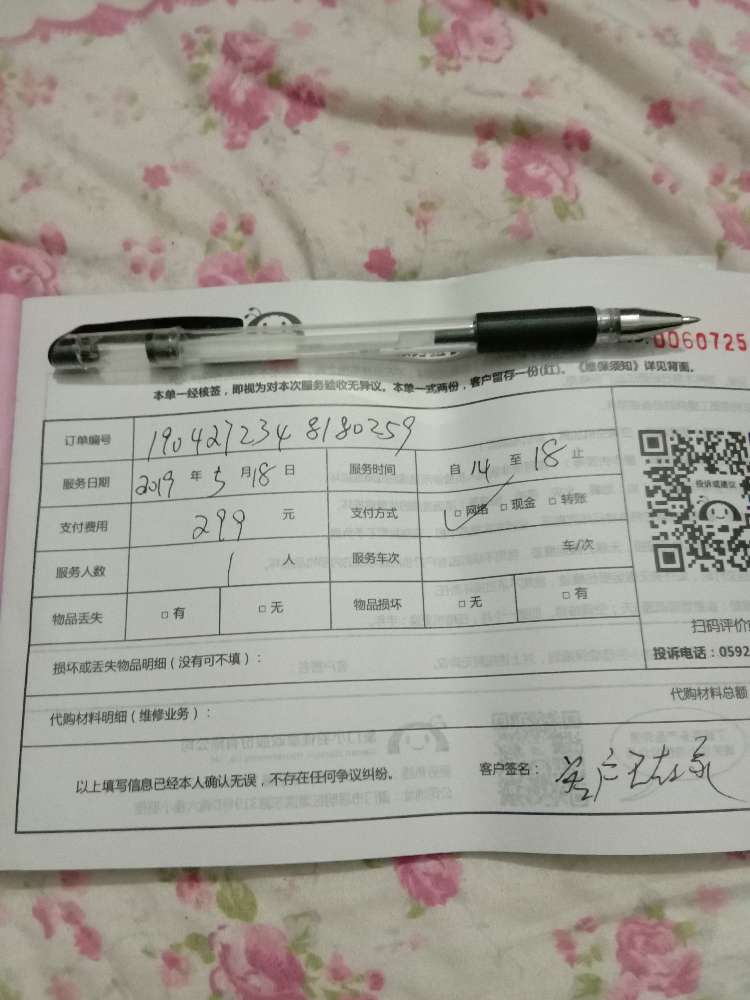 0060725
本单一经核签，即视为对本次服务验收无异议。本单一式两份，客户留存一份(红)。《维保须知》详见背面。
订单编号 1904272348180259
服务日期 2019 年 5 月 18 日 服务时间 自 14 至 18 止
投诉或建议
支付费用 299 元 支付方式 □ 网络 □ 现金 □ 转账
服务人数 1 人 服务车次 车/次
物品丢失 □ 有 □ 无 物品损坏 □ 无 □ 有
扫码评价
损坏或丢失物品明细（没有可不填）：
投诉电话：0592
代购材料明细（维修业务）： 代购材料总额
以上填写信息已经本人确认无误，不存在任何争议纠纷。 客户签名：